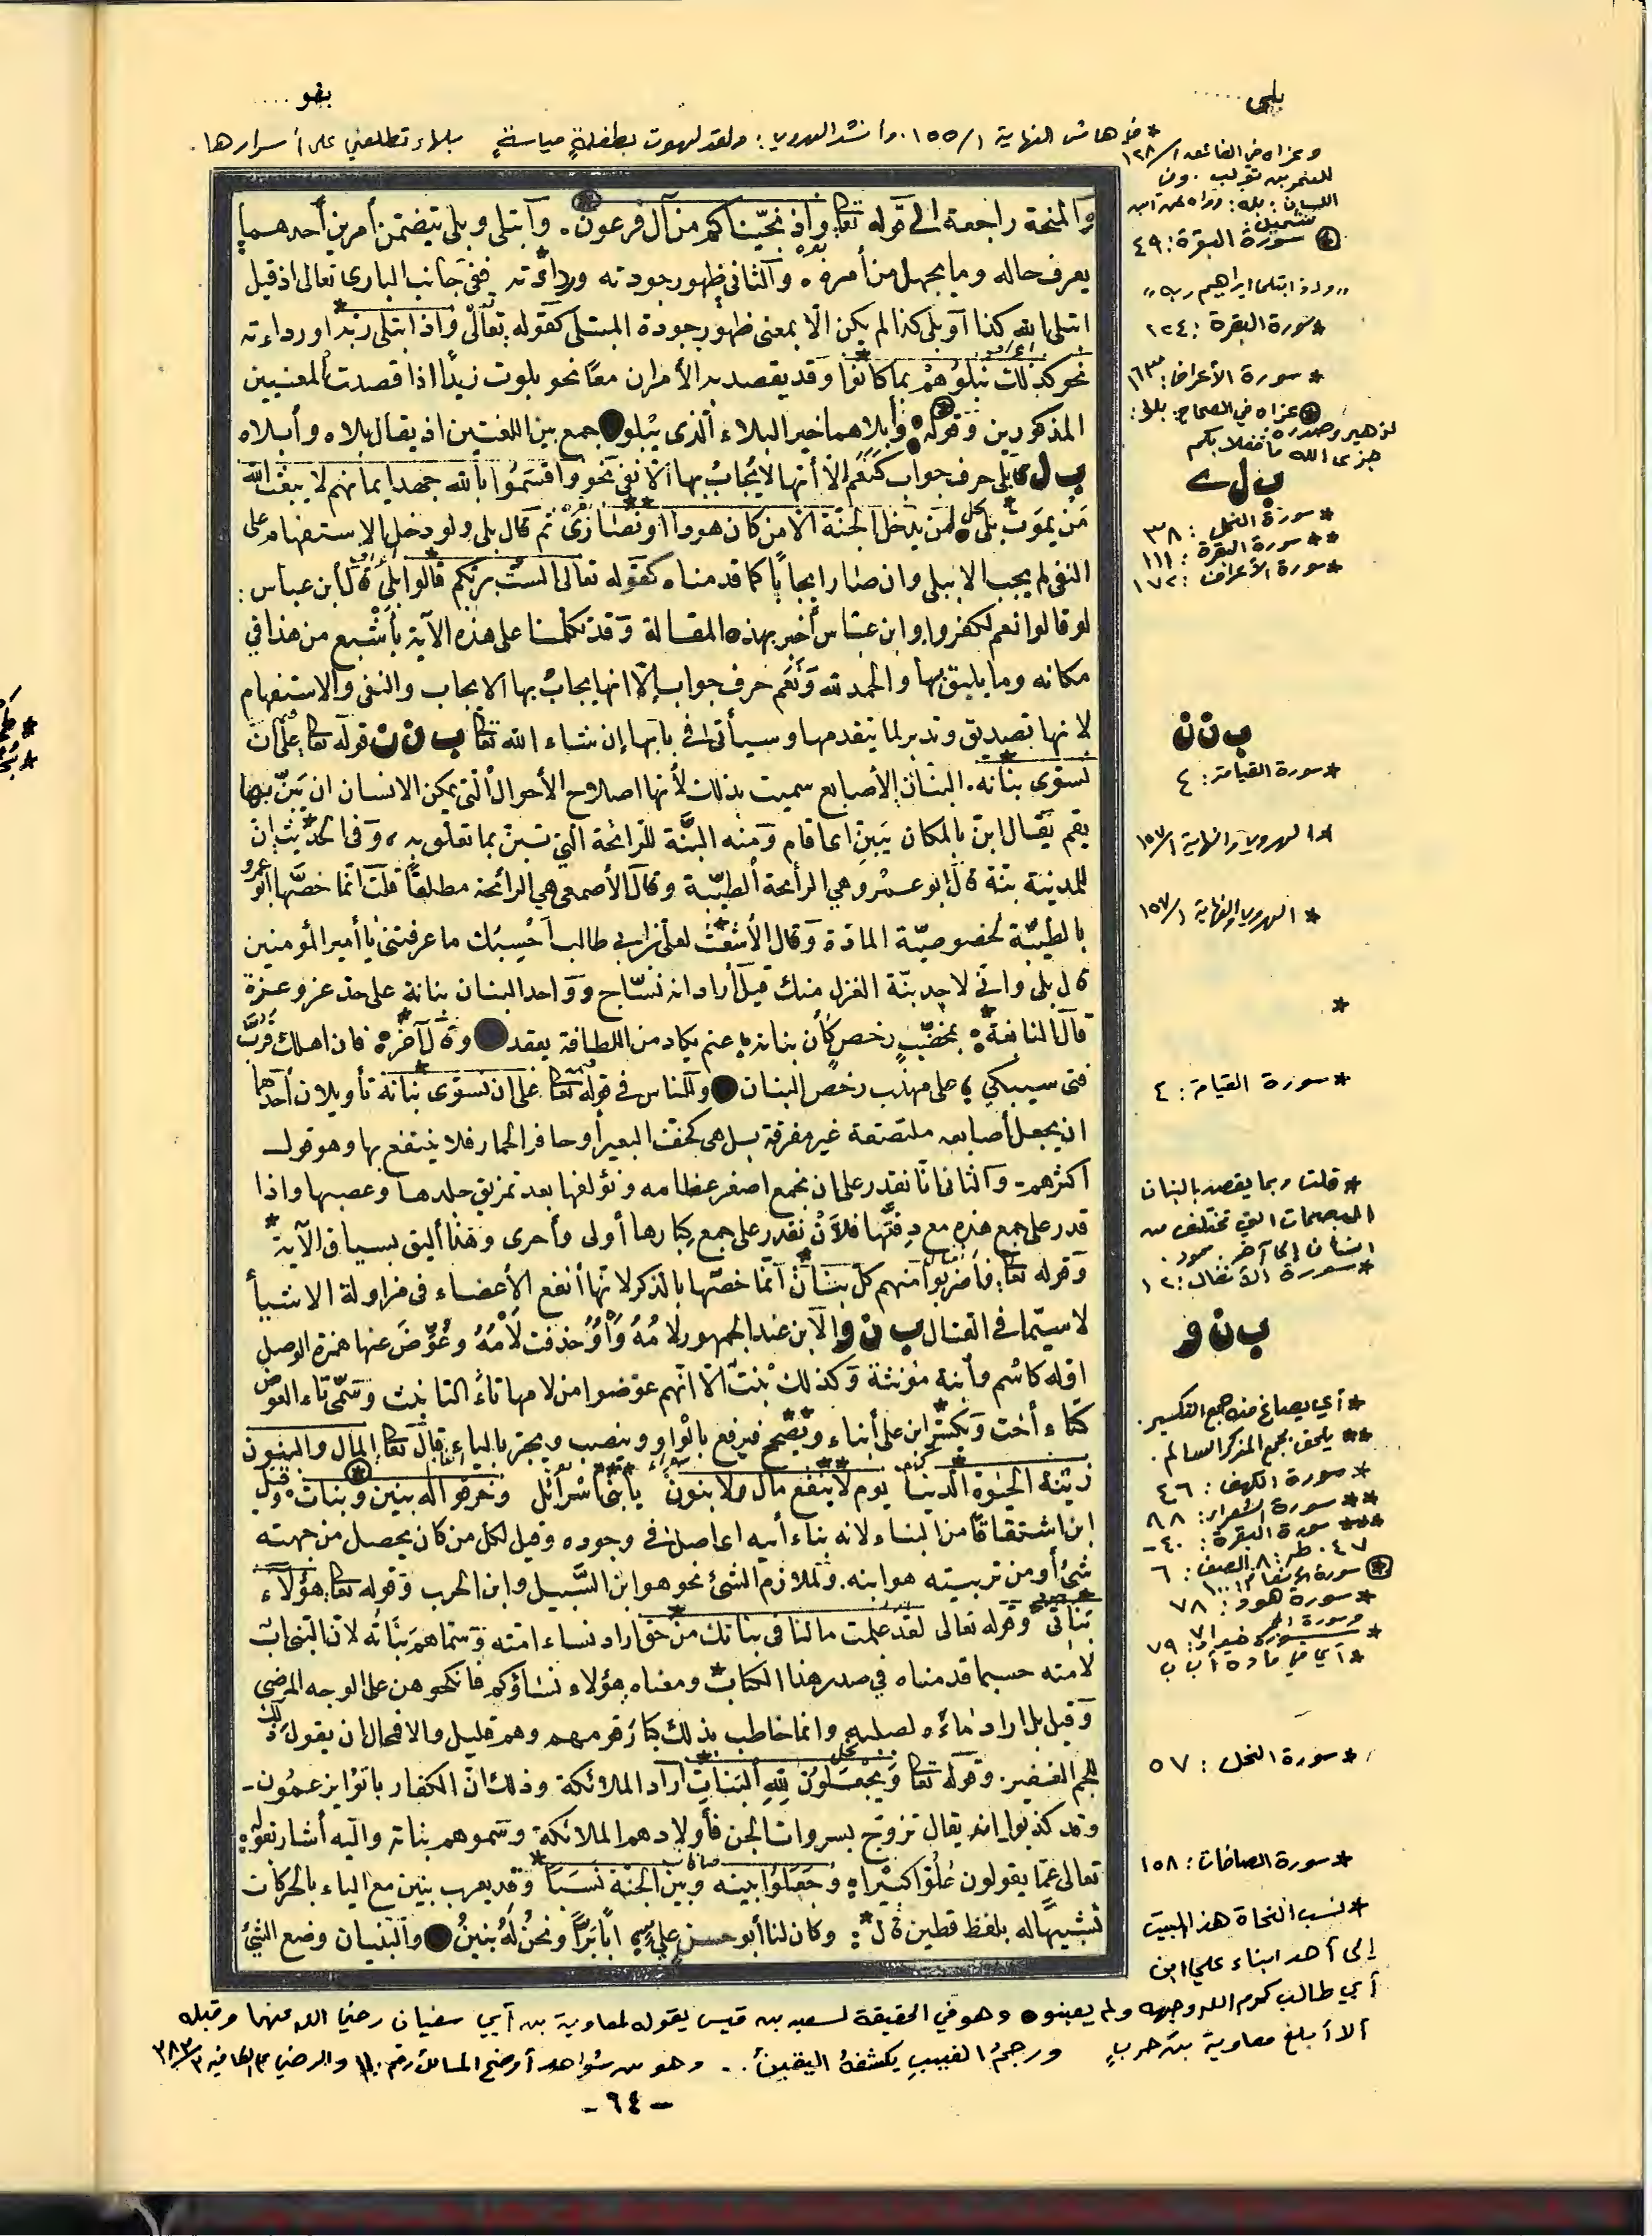 بلى.....
بنو....
* في هامش النهاية ١/١٥٥. وأنشد الهروي: ولقد لهوت بطفلةٍ مياسةٍ بلهاء تطلعني على أسرارها.
وعزاه في الفائق ١/١٢٨
للنمر بن تولب. وفي
اللسان: بله:
والمنحة راجعة الى قوله تعالى واذ نجّيناكم من آل فرعون. وابتلى وبلى يتضمن أمرين أحدهما
يعرف حاله وما يجهل من أمره، والثاني ظهور جودته ورداءته ففى جانب البارى تعالى اذ قيل
ابتلى الله كذا أو بلى كذا لم يكن الا بمعنى ظهور جودة المبتلى كقوله تعالى واذ ابتلى ربه أو رداءته
نحو كذلك نبلوهم بما كانوا وقد يقصد به الأمران معًا نحو بلوت زيدًا اذا قصدت المعنيين
المذكورين وقوله: وأبلاهما خير البلاء الذى يبلو جمع بين اللغتين اذ يقال بلاه وأبلاه
ب ل ى بلى حرف جواب كنعم الا أنها لا يُجابُ بها الا نفى نحو وأقسموا بالله جهد أيمانهم لا يبعث الله
من يموت بلى، لن يدخل الجنة الا من كان هودا أو نصارى ثم قال بلى ولو دخل الاستفهام على
النفى لم يجب الا ببلى وان صار ايجابًا كما قدمناه كقوله تعالى ألست بربكم قالوا بلى قال ابن عباس:
لو قالوا نعم لكفروا وابن عباس أخبر بهذه المقالة وقد تكلمنا على هذه الآية بأشبع من هذا في
مكانه وما يليق بها والحمد لله ونعم حرف جواب إلا انها يجاب بها الايجاب والنفى والاستفهام
لانها تصديق وتدبر لما يتقدمها وسيأتى فى بابها إن شاء الله تعالى ب ن ن قوله تعالى على أن
نسوى بنانه. البنان الأصابع سميت بذلك لأنها اصلاح الأحوال التى يمكن الانسان ان يبنّ بها
يقم يقال ابن بالمكان يبن اى أقام ومنه البنّة للرائحة التي تبن بما تعلق به، وفى الحديث إن
للمدينة بنة قال ابو عمرو هي الرائحة الطيبة وقال الأصمعى هي الرائحة مطلقًا قلت انما خصها أبو عمرو
بالطيبة لخصوصية المادة وقال الأشعث لعلى بن ابي طالب أحسبك ما عرفتني يا أمير المؤمنين
قال بلى وانى لاجد بنّة الغزل منك قيل أراد انه نساج وواحد البنان بنانة على حد عز وعزة
قال النابغة: بمخضبٍ رخصٍ كأن بنانه عنم يكاد من اللطافة يعقد وقال آخر: فان اهلك فرب
فتى سيبكي على مهذب رخص البنان وللناس فى قوله تعالى على ان نسوى بنانه تأويلان أحدهما
ان يجعل أصابعه ملتصقة غير مفرقة بل هى كخف البعير أو حافر الحمار فلا ينتفع بها وهو قول
أكثرهم. والثانى انا نقدر على ان نجمع اصغر عظامه ونؤلفها بعد تمزيق جلدها وعصبها واذا
قدر على جمع هذه مع دِقّتها فلأن نقدر على جمع كبارها أولى وأحرى وهذا أليق بسياق الآية
وقوله تعالى فاضربوا منهم كل بنان انما خصها بالذكر لانها أنفع الأعضاء فى مزاولة الاشيأ
لا سيما فى القتال ب ن و الابن عند الجمهور لامه واو حذفت لامه وعُوّض عنها همزة الوصل
اوله كاسم وابنة مؤنثة وكذلك بنت الا انهم عوضوا من لامها تاء التانيث وسمى تاء العوض
كتاء أخت ويكسّر ابن على أبناء ويصح فيرفع بالواو وينصب ويجر بالياء قال تعالى المال والبنون
زينة الحيوة الدنيا يوم لا ينفع مال ولا بنون يا بنى اسرائيل وخرقوا له بنين وبنات، وقيل
ابن اشتقاقا من البناء لانه بناء أبيه اى اصل فى وجوده وقيل لكل من كان يحصل من جهته
شئ أو من تربيته هو ابنه. ولملازم الشئ نحو هو ابن السبيل وابن الحرب وقوله تعالى هؤلاء
بناتى وقوله تعالى لقد علمت ما لنا فى بناتك من حق اراد نساء امته وسماهم بناته لان النبى أب
لامته حسبما قدمناه في صدر هذا الكتاب ومعناه هؤلاء نساؤكم فانكحوهن على الوجه المرضي
وقيل بل اراد نساءه لصلبه وانما خاطب بذلك كبار قومهم وهم قليل والا فحال ان يقول ذلك
للجم الغفير. وقوله تعالى ويجعلون لله البنات أراد الملائكة وذلك ان الكفار باتوا يزعمون -
وقد كذبوا انه يقال تزوج بسروات الجن فأولدهم الملائكة وسموهم بناته واليه أشار بقوله
تعالى عما يقولون علوا كبيرا، وجعلوا بينه وبين الجنة نسبا وقد يعرب بنين مع الياء بالحركات
تشبيهًا له بلفظ قطين قال: وكان لنا أبو حسن علي أبًا برًّا ونحن له بنينُ والبنيان وضع الشئ
* سورة البقرة: ٤٩
"وإذ ابتلى ابراهيم ربه"
* سورة البقرة: ١٢٤
* سورة الأعراف: ١٦٣
* عزاه في الصحاح: بلى:
لزهير وصدره:
جزى الله ما فعلا بكم
ب ل ى
* سورة النحل: ٣٨
** سورة البقرة: ١١١
* سورة الأعراف: ١٧٢
ب ن ن
* سورة القيامة: ٤
* الهروي والنهاية ١/١٥٧
* الهروي والنهاية ١/١٥٧
*
* سورة القيامة: ٤
* قلت ربما يقصد بالبنان
البصمات التي تختلف من
انسان إلى آخر. محمود.
* سورة الأنفال: ١٢
ب ن و
* أي يصاغ منه جمع التكسير.
** يلحق بجمع المذكر السالم.
* سورة الكهف: ٤٦
** سورة الشعراء: ٨٨
*** سورة البقرة: ٤٠ -
٤٧. طه: ٨٠ الصف: ٦
* سورة الأنعام: ١٠٠
* سورة هود: ٧٨
وسورة الحجر ٧١
* سورة هود: ٧٩
* أي في مادة أ ب ب
* سورة النحل: ٥٧
* سورة الصافات: ١٥٨
* نسب النحاة هذا البيت
إلى أحد ابناء علي ابن
أبي طالب كرم الله وجهه ولم يعينوه وهو في الحقيقة لسعيد بن قيس يقوله لمعاوية بن أبي سفيان رضي الله عنهما وقبله
ألا أبلغ معاوية بن حربٍ ورجمُ الغيبِ يكشفهُ اليقينُ.. وهو من شواهد أوضح المسالك رقم ١١٠ والرضي ع الكافية ٣/٣٨٣
- ٦٤ -